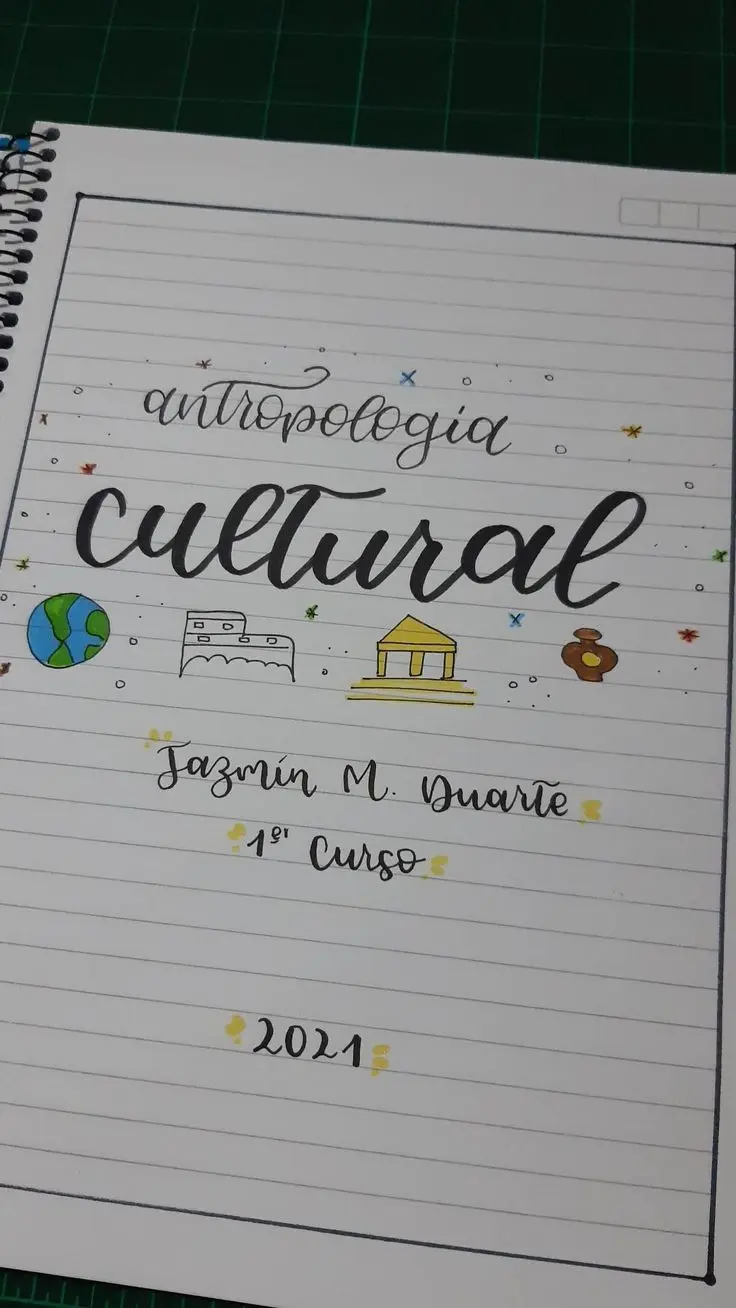 antropología
cultural
Jazmín M. Duarte
1er Curso
2021